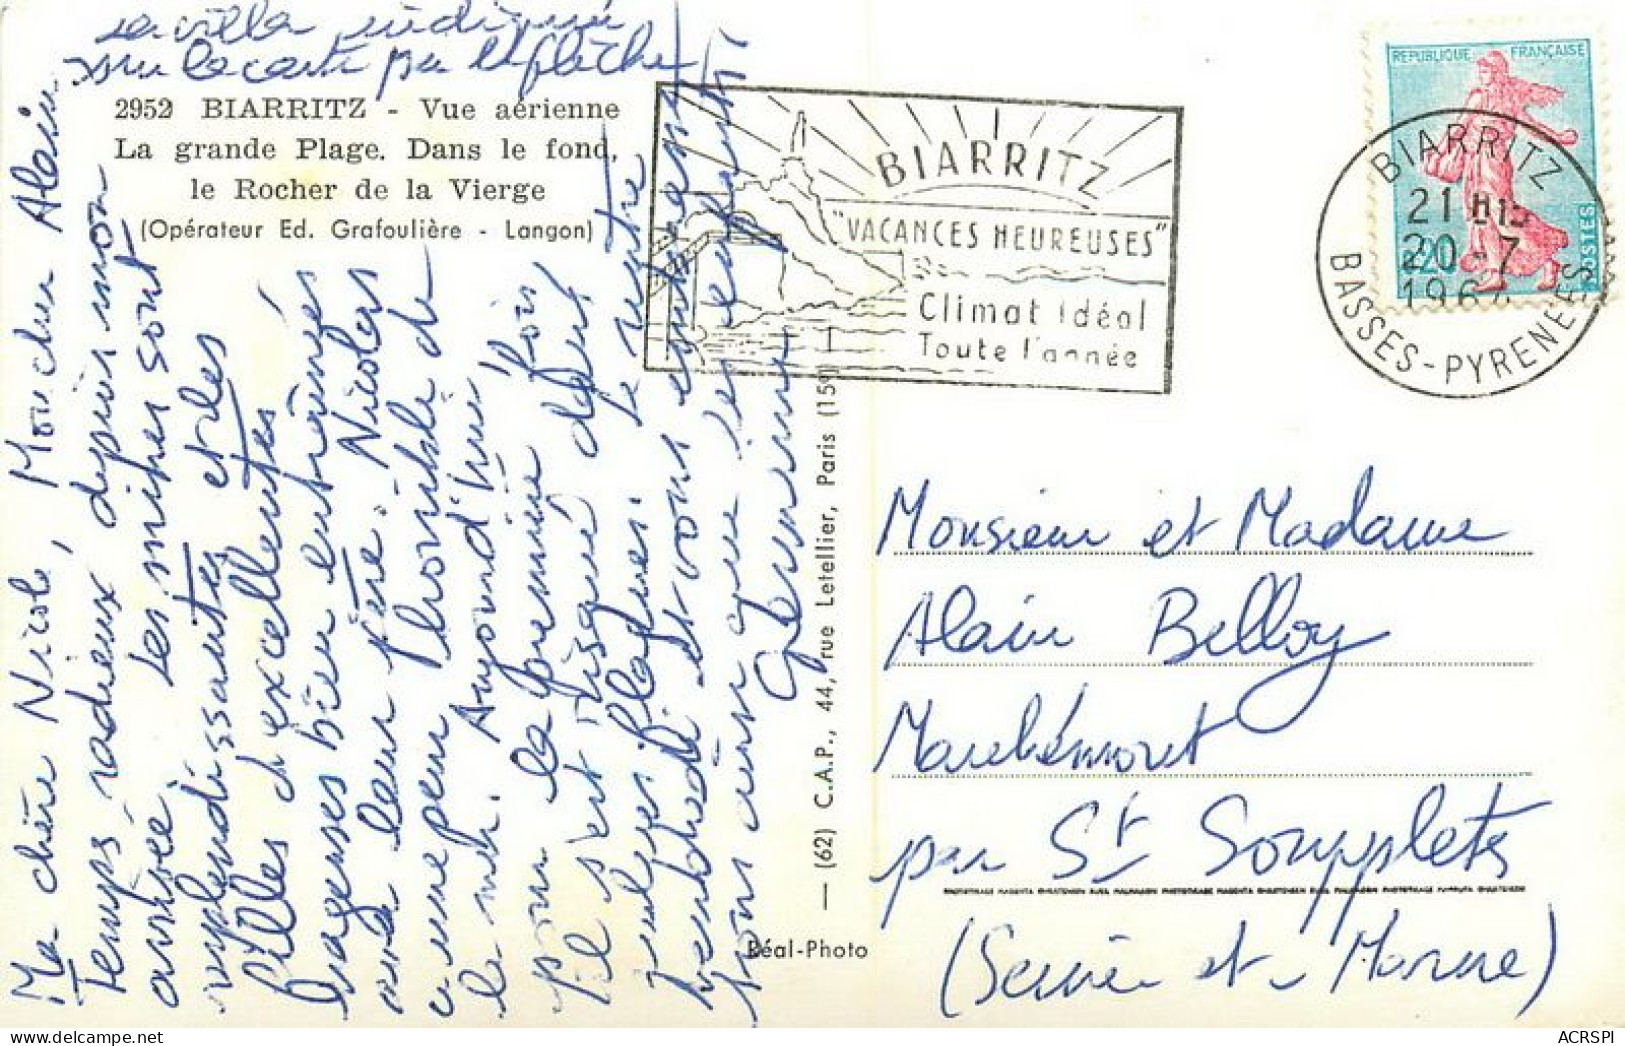 la villa indiquée
sur la carte par la flèche
2952 BIARRITZ - Vue aérienne
La grande Plage. Dans le fond,
le Rocher de la Vierge
(Opérateur Ed. Grafoulière - Langon)
BIARRITZ
"VACANCES HEUREUSES"
Climat Idéal
Toute l'année
REPUBLIQUE FRANÇAISE
POSTES
BIARRITZ
21 H15
20-7
196
BASSES-PYRENEES
Ma chère Nicole, Mon cher Alain
Temps radieux depuis mon
arrivée. Les miches sont
resplendissantes et les
filles d'excellentes
nageuses bien entraînées
avec leur père. Nicolas
a une peur horrible de
la mer. Aujourd'hui
pour la première fois
il s'est risqué dans
le ventre
et vous embrasse
ainsi que les enfants
— (62) C.A.P., 44, rue Letellier, Paris (15e)
Réal-Photo
Monsieur et Madame
Alain Belloy
Marchémoret
par St Soupplets
(Seine et Marne)
ACRSPI